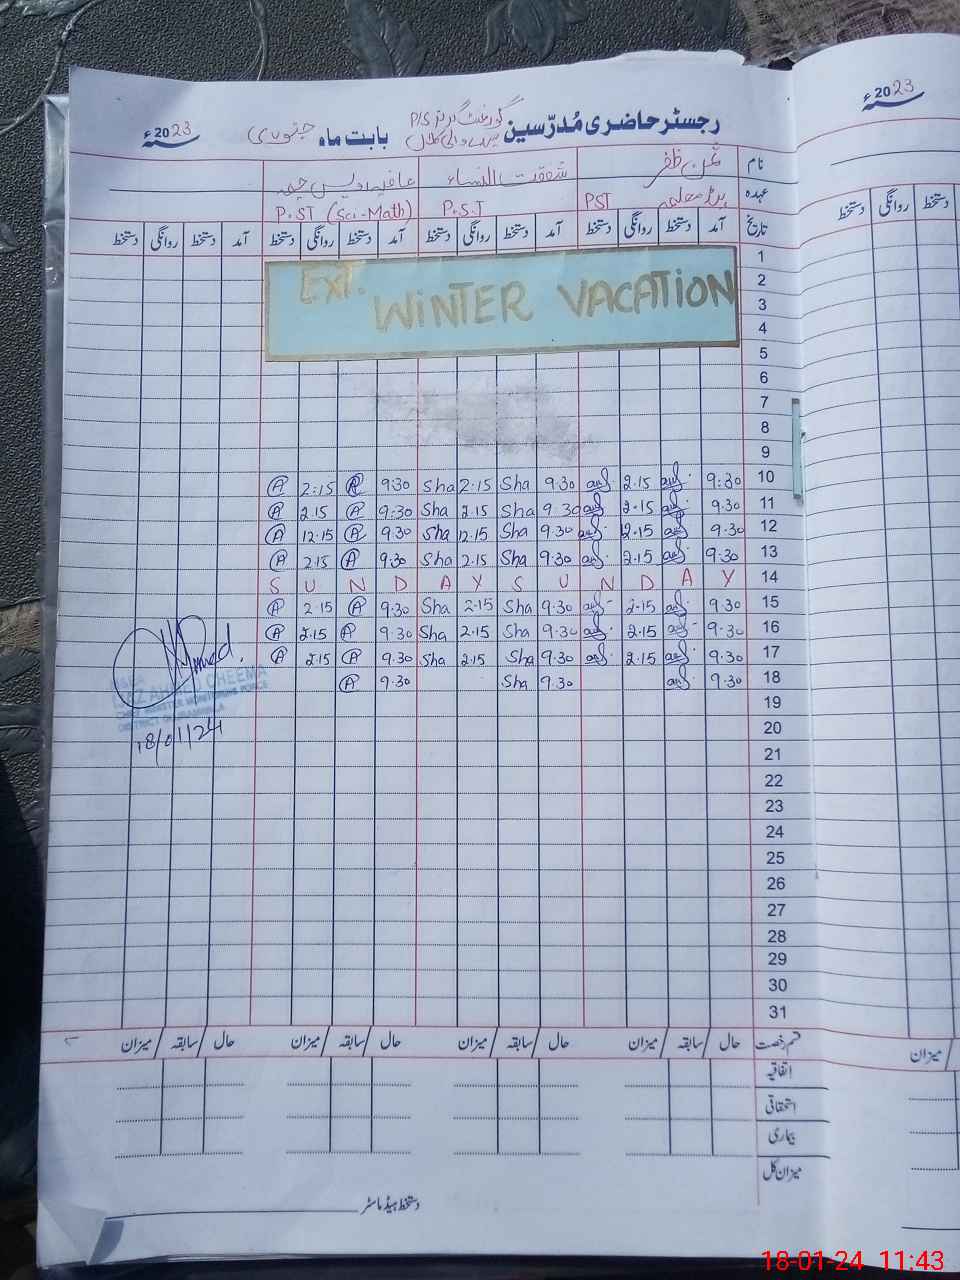 رجسٹر حاضری مُدرّسین گورنمنٹ گرلز P/S بابت ماہ جنوری 2023ء
2023ء
نام شفقت النساء
عہدہ ہیڈ معلمہ PST P.S.T P.ST (Sci-Math)
تاریخ آمد دستخط روانگی دستخط آمد دستخط روانگی دستخط آمد دستخط روانگی دستخط آمد دستخط روانگی دستخط
دستخط روانگی دستخط
EXT. WINTER VACATION
1
2
3
4
5
6
7
8
9
A 2:15 A 9:30 Sha 2.15 Sha 9.30 2.15 9:30 10
A 2.15 A 9:30 Sha 2.15 Sha 9.30 2.15 9.30 11
A 12.15 A 9.30 Sha 12.15 Sha 9.30 12.15 9.30 12
A 2.15 A 9.30 Sha 2.15 Sha 9.30 2.15 9.30 13
S U N D A Y S U N D A Y 14
A 2.15 A 9.30 Sha 2.15 Sha 9.30 2.15 9.30 15
A 2.15 A 9.30 Sha 2.15 Sha 9.30 2.15 9.30 16
A 2.15 A 9.30 Sha 2.15 Sha 9.30 2.15 9.30 17
A 9.30 Sha 9.30 9.30 18
AHMED CHEEMA
18/01/24
19
20
21
22
23
24
25
26
27
28
29
30
31
قسم رخصت حال / سابقہ / میزان حال / سابقہ / میزان حال / سابقہ / میزان حال / سابقہ / میزان
میزان
اتفاقیہ
استحقاقی
بیماری
میزان کل
دستخط ہیڈ ماسٹر
18-01-24 11:43